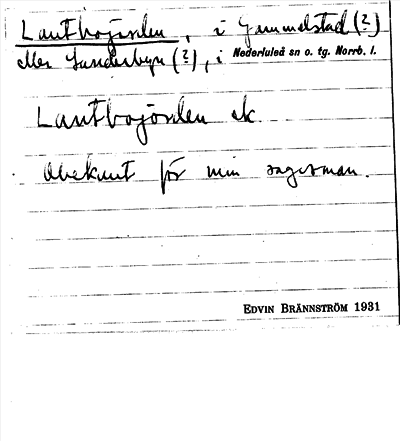 Lantbojorden, i Gammelstad (?)
eller Sunderbyn (?), i Nederluleå sn o. tg. Norrb. l.
Lantbojorden sk.
Obekant för min sagesman.
EDVIN BRÄNNSTRÖM 1931